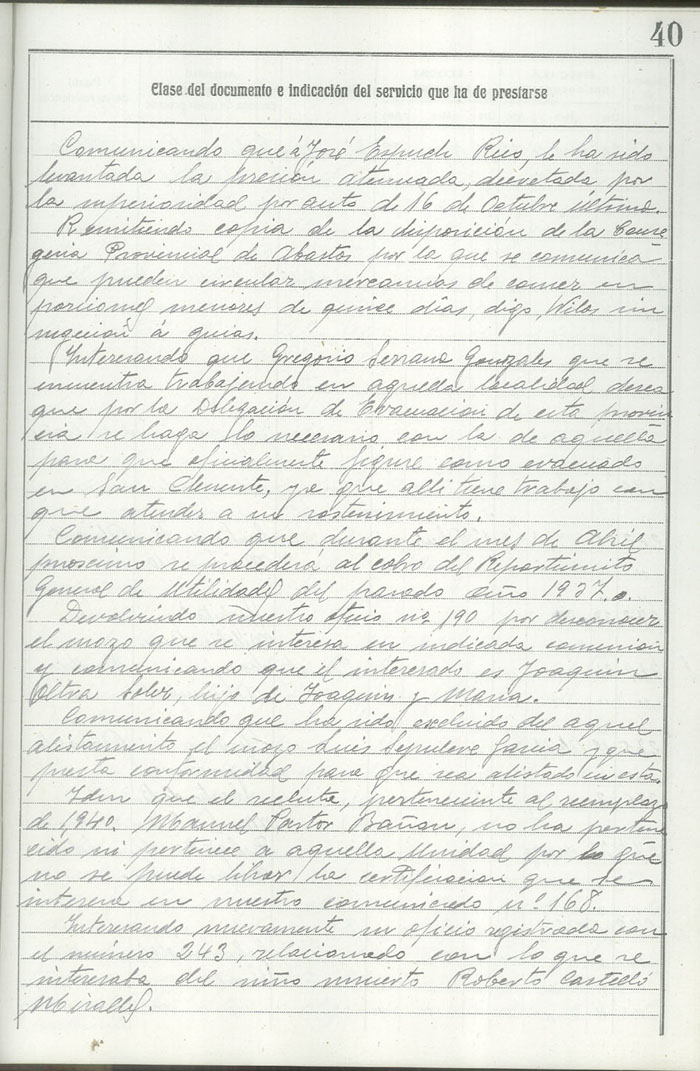 40
Clase del documento e indicación del servicio que ha de prestarse
Comunicando que á José Espuch Rico, le ha sido
levantada la prisión atenuada, decretada por
la superioridad por auto de 16 de Octubre último.
Remitiendo copia de la disposición de la Conse
geria Provincial de Abastos por la que se comunica
que pueden circular mercancias de comer en
porciones menores de quince dias, digo, kilos sin
sugeción á guias.
Interesando que Gregorio Serrano Gonzales que se
encuentra trabajando en aquella localidad desea
que por la Delegación de Evacuación de esta provin
cia se haga lo necesario con la de aquella
para que oficialmente figure como evacuado
en San Clemente, ya que alli tiene trabajo con
que atender a su sostenimiento.
Comunicando que durante el mes de Abril
proscimo se procederá al cobro del Repartimiento
General de Utilidades del pasado año 1937.
Devolviendo nuestro oficio nº 190 por desconocer
el mozo que se interesa en indicada comunion
y comunicando que el interesado es Joaquin
Oltra hijo de Joaquin y Maria.
Comunicando que ha sido excluido del aquel
alistamiento el mozo Luis Sepulcre Garcia y que
presta conformidad para que sea alistado en esta.
Idem que el recluta, perteneciente al reemplazo
de 1,940. Manuel Pastor Bañon, no ha pertene
cido ni pertenece a aquella Unidad por lo que
no se puede librar la certificacion que se
interesa en nuestro comunicado nº 168.
Interesando nuevamente su oficio registrado con
el número 243, relacionado con lo que se
interesaba del niño muerto Roberto Castelló
Miralles.